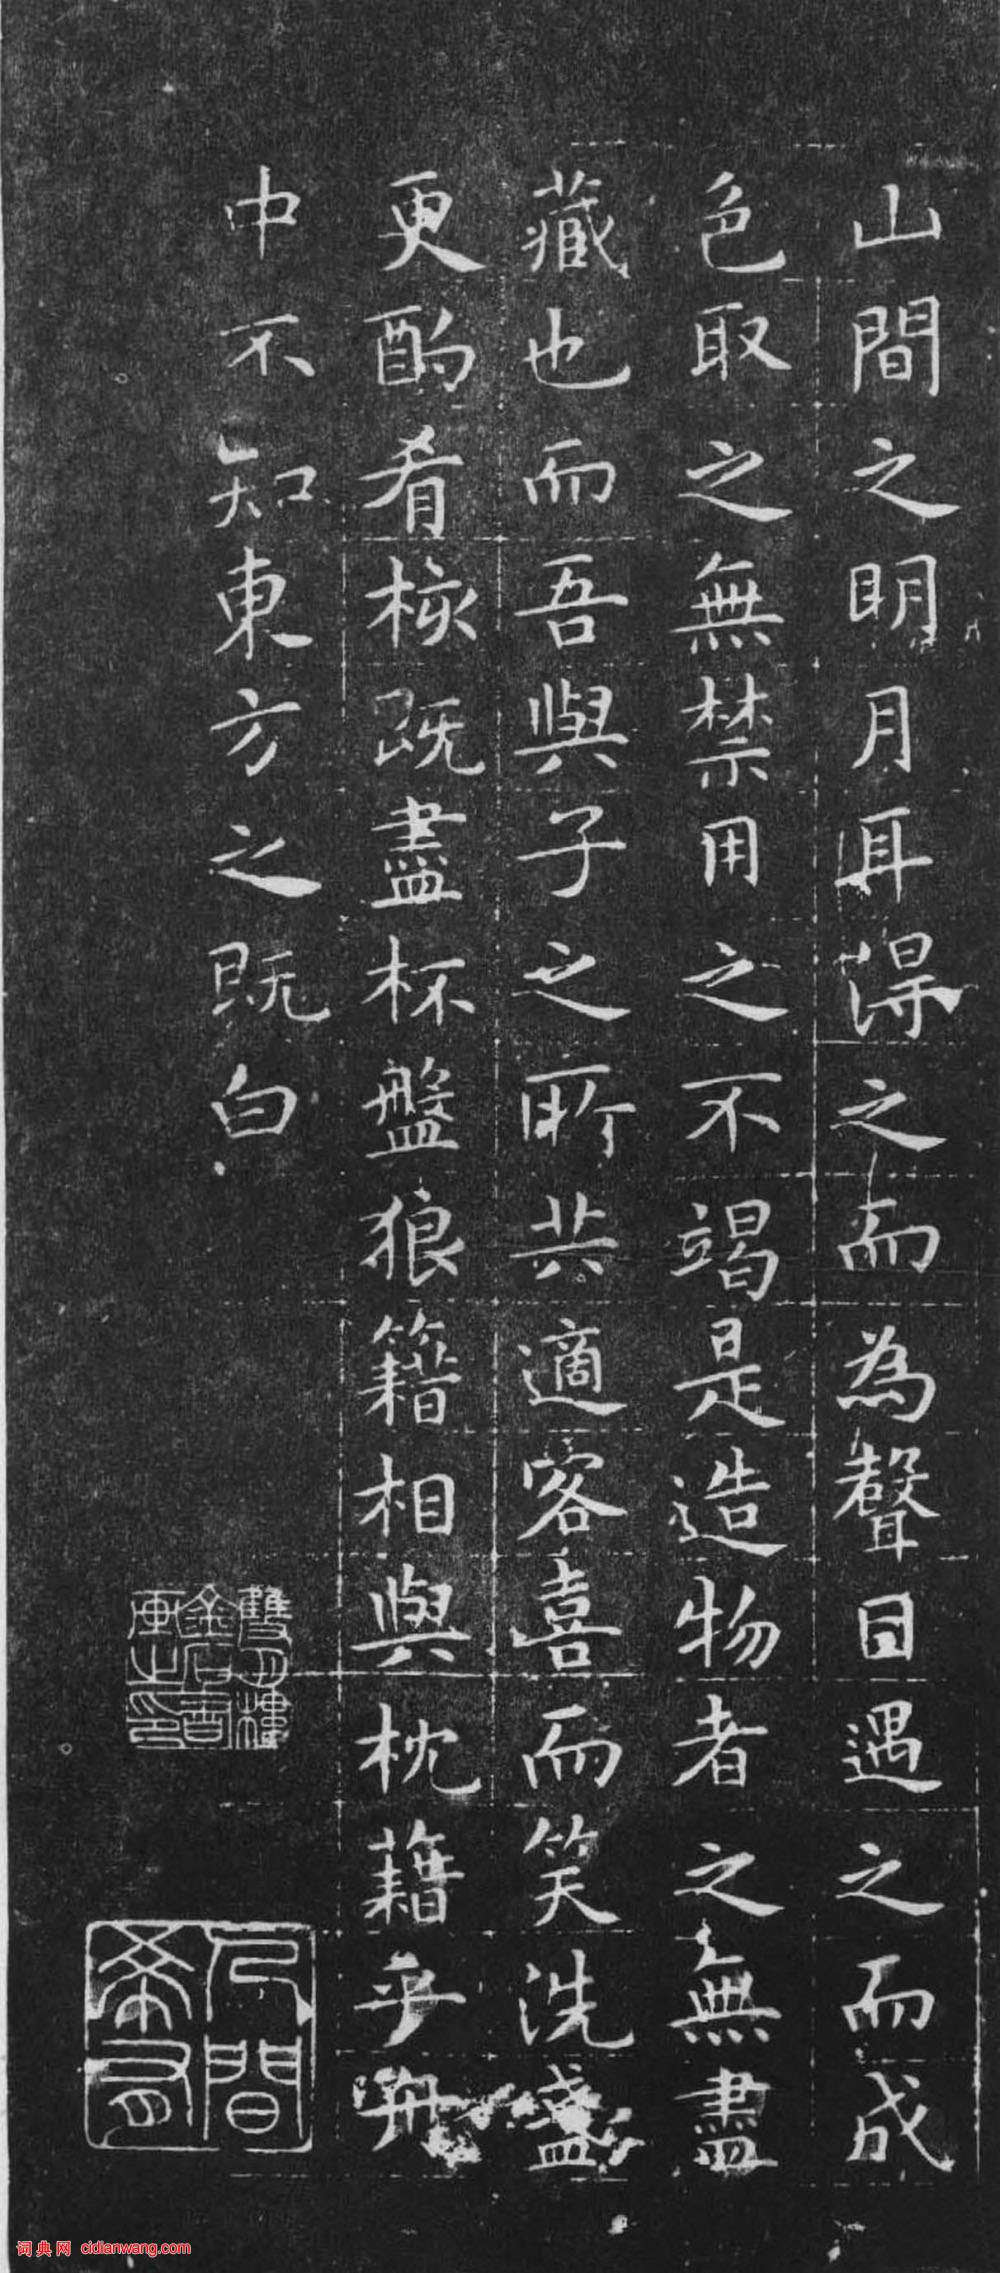 山間之明月耳得之而為聲目遇之而成
色取之無禁用之不竭是造物者之無盡
藏也而吾與子之所共適客喜而笑洗盞
更酌肴核既盡杯盤狼籍相與枕藉乎舟
中不知東方之既白
金石書
畫之印
人間
希有
词典网 cidianwang.com